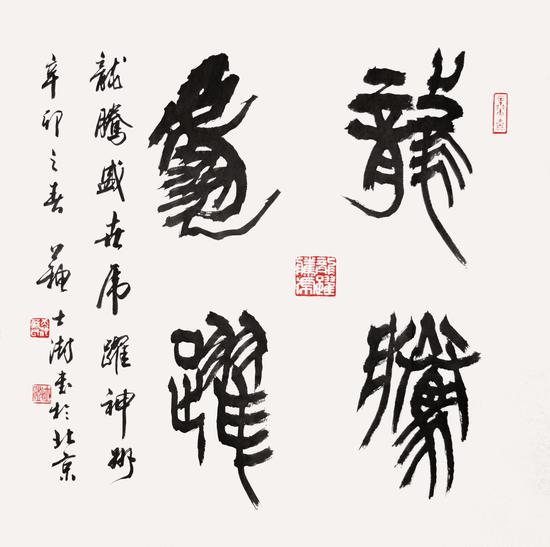 龍騰
虎躍
龍騰盛世虎躍神州
辛卯之春 蘇士澍書於北京